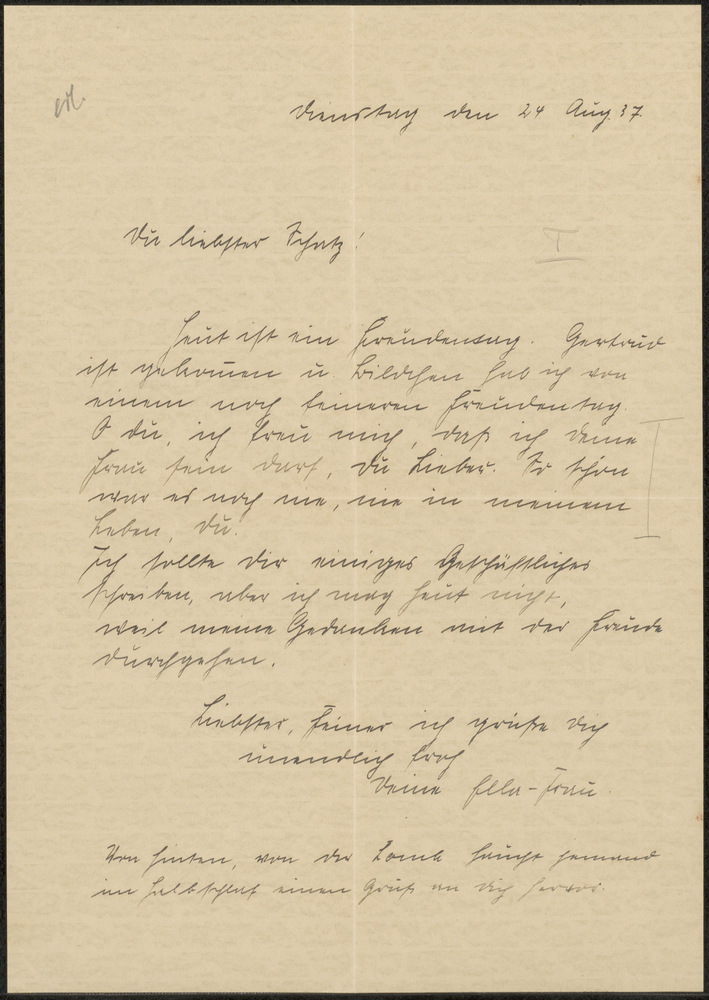 Dienstag den 24 Aug. 37.
Du liebster Schatz!
I
Heut ist ein Freudentag. Gertrud
ist gekommen u. Bildchen hab ich von
einem noch feineren Freudentag.
O du, ich freu mich, daß ich deine
Frau sein darf, du Lieber. So schön
war es noch nie, nie in meinem
Leben, du.
Ich sollte dir einiges Geschäftliches
schreiben, aber ich mag heut nicht,
weil meine Gedanken mit der Freude
durchgehen.
Liebster, Feiner ich grüße dich
unendlich froh
Deine Ella-Frau.
Von hinten, von der haucht jemand
im Halbschlaf einen Gruß an dich hervor.